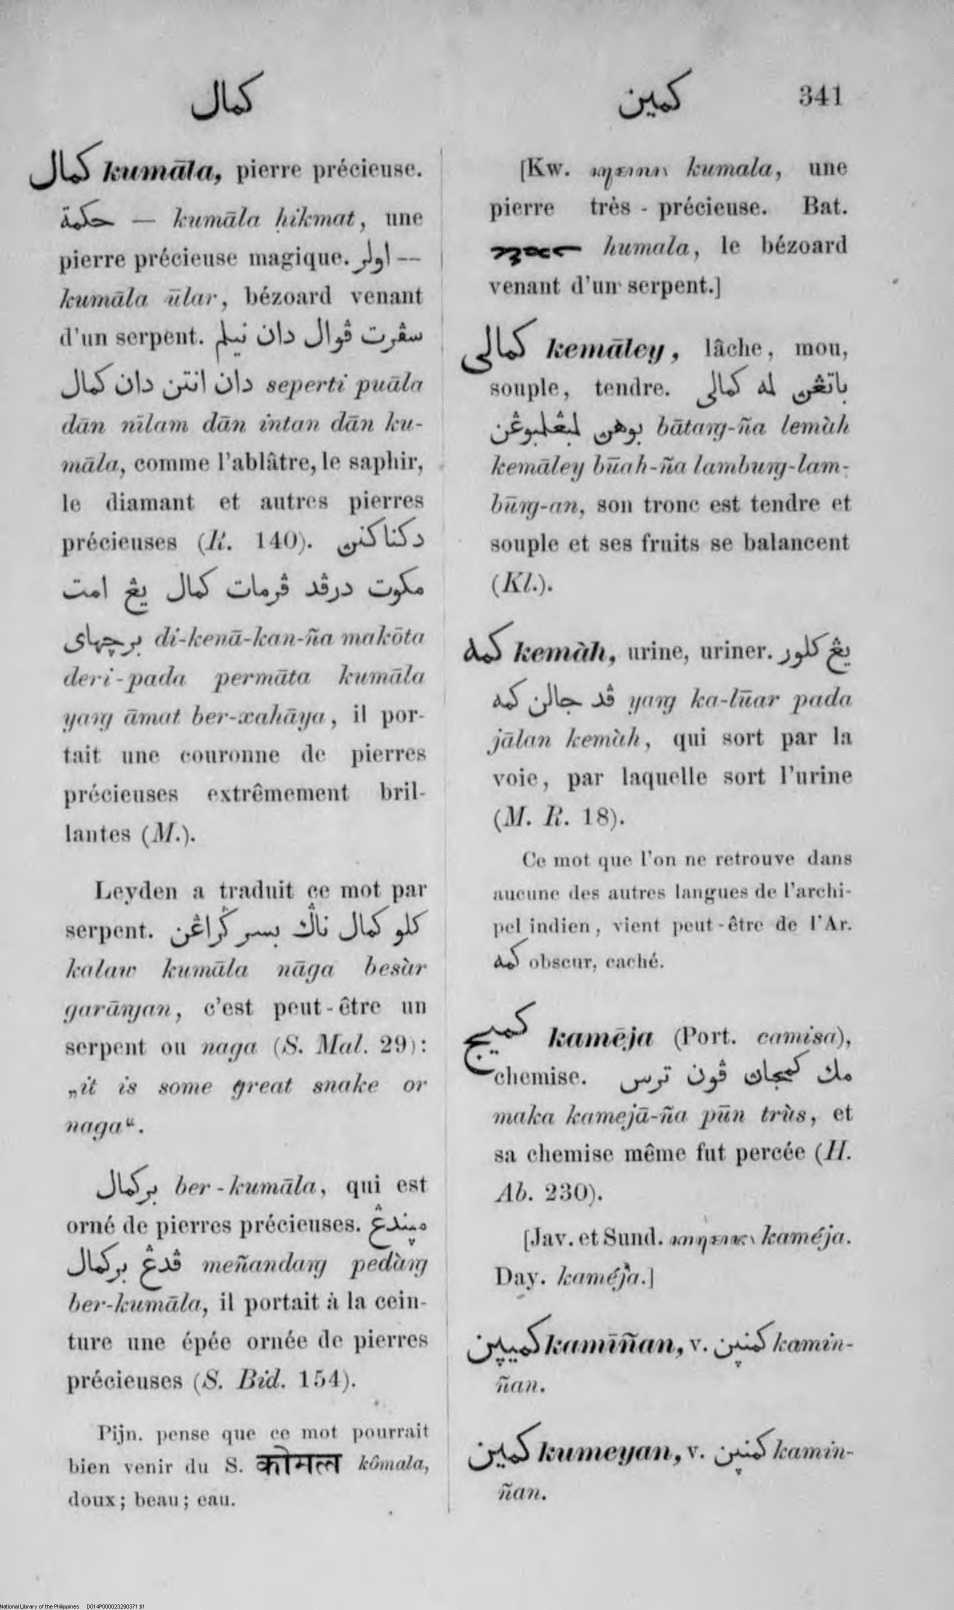 كمال
كمين 341
كمال kumāla, pierre précieuse.
حكمة — kumāla ḥikmat, une
pierre précieuse magique. اولر —
kumāla ūlar, bézoard venant
d'un serpent. سڤرت ڤوال دان نيلم
دان انتن دان كمال seperti puāla
dān nīlam dān intan dān ku-
māla, comme l'ablâtre, le saphir,
le diamant et autres pierres
précieuses (R. 140). دكناكنڽ
مكوت درڤد ڤرمات كمال يڠ امت
برچهاى di-kenā-kan-ña makōta
deri-pada permāta kumāla
yaṇg āmat ber-xahāya, il por-
tait une couronne de pierres
précieuses extrêmement bril-
lantes (M.).
Leyden a traduit ce mot par
serpent. كلو كمال ناݢ بسر ݢراڠن
kalaw kumāla nāga besàr
garāṇgan, c'est peut-être un
serpent ou naga (S. Mal. 29):
„it is some great snake or
naga“.
بركمال ber-kumāla, qui est
orné de pierres précieuses. مڽندڠ
ڤدڠ بركمال meñandaṇg pedàṇg
ber-kumāla, il portait à la cein-
ture une épée ornée de pierres
précieuses (S. Bid. 154).
Pijn. pense que ce mot pourrait
bien venir du S. कोमल kômala,
doux; beau; eau.
[Kw. kumala, une
pierre très-précieuse. Bat.
humala, le bézoard
venant d'un serpent.]
كمالى kemāley, lâche, mou,
souple, tendre. باتڠڽ له كمالى
بوهڽ لمبڠلمبوڠن bātaṇg-ña lemùh
kemāley būah-ña lambuṇg-lam-
būṇg-an, son tronc est tendre et
souple et ses fruits se balancent
(Kl.).
كمه kemàh, urine, uriner. يڠ كلور
ڤد جالن كمه yaṇg ka-lūar pada
jālan kemùh, qui sort par la
voie, par laquelle sort l'urine
(M. R. 18).
Ce mot que l'on ne retrouve dans
aucune des autres langues de l'archi-
pel indien, vient peut-être de l'Ar.
كمه obscur, caché.
كميج kamēja (Port. camisa),
chemise. مك كميجاڽ ڤون ترس
maka kamejā-ña pūn trùs, et
sa chemise même fut percée (H.
Ab. 230).
[Jav. et Sund. kaméja.
Day. kaméja.]
كميڽن kamīñan, v. كمنڽن kamin-
ñan.
كمين kumeyan, v. كمنڽن kamin-
ñan.
National Library of the Philippines D014P000023290371.tif